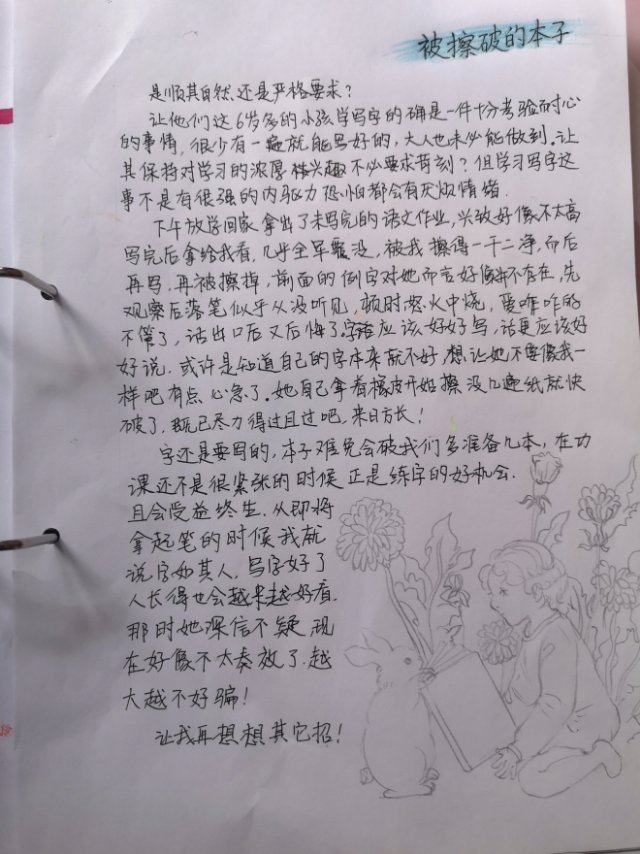 被擦破的本子
是顺其自然还是严格要求?
让他们这6岁多的小孩学写字的确是一件十分考验耐心
的事情,很少有一遍就能写好的,大人也未必能做到.让
其保持对学习的浓厚兴趣不必要求苛刻?但学习写字这
事不是有很强的内驱力恐怕都会有厌烦情绪.
下午放学回家拿出了未写完的语文作业,兴致好像不太高
写完后拿给我看,几乎全军覆没,被我擦得一干二净,而后
再写,再被擦掉,前面的例字对她而言好像并不存在,先
观察后落笔似乎从没听见,顿时怒火中烧,爱咋咋的
不管了,话出口后又后悔了,字应该好好写,话更应该好
好说,或许是知道自己的字本来就不好,想让她不要像我一
样吧有点心急了.她自己拿着橡皮开始擦没几遍纸就快
破了,既已尽力得过且过吧,来日方长!
字还是要写的,本子难免会破我们多准备几本,在功
课还不是很紧张的时候正是练字的好机会.
且会受益终生.从即将
拿起笔的时候我就
说字如其人,写字好了
人长得也会越来越好看.
那时她深信不疑,现
在好像不太奏效了.越
大越不好骗!
让我再想想其它招!